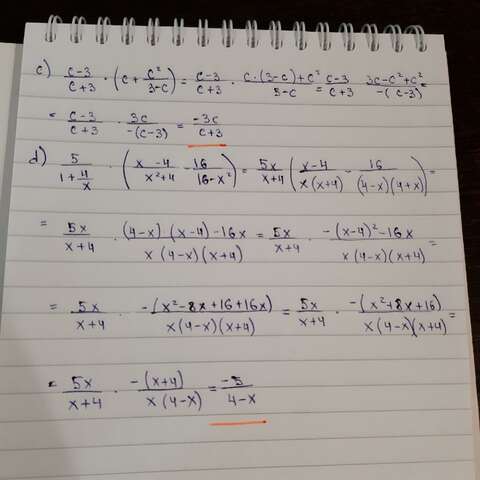 c) \frac{c-3}{c+3} · (c + \frac{c²}{3-c}) = \frac{c-3}{c+3} · \frac{c·(3-c)+c²}{3-c} = \frac{c-3}{c+3} · \frac{3c-c²+c²}{-(c-3)} =
= \frac{c-3}{c+3} · \frac{3c}{-(c-3)} = \frac{-3c}{c+3}
d) \frac{5}{1+\frac{4}{x}} · (\frac{x-4}{x²+4} - \frac{16}{16-x²}) = \frac{5x}{x+4} (\frac{x-4}{x(x+4)} - \frac{16}{(4-x)(4+x)}) =
= \frac{5x}{x+4} · \frac{(4-x)·(x-4)-16x}{x(4-x)(x+4)} = \frac{5x}{x+4} · \frac{-(x-4)²-16x}{x(4-x)(x+4)} =
= \frac{5x}{x+4} · \frac{-(x²-8x+16+16x)}{x(4-x)(x+4)} = \frac{5x}{x+4} · \frac{-(x²+8x+16)}{x(4-x)(x+4)} =
= \frac{5x}{x+4} · \frac{-(x+4)}{x(4-x)} = \frac{-5}{4-x}